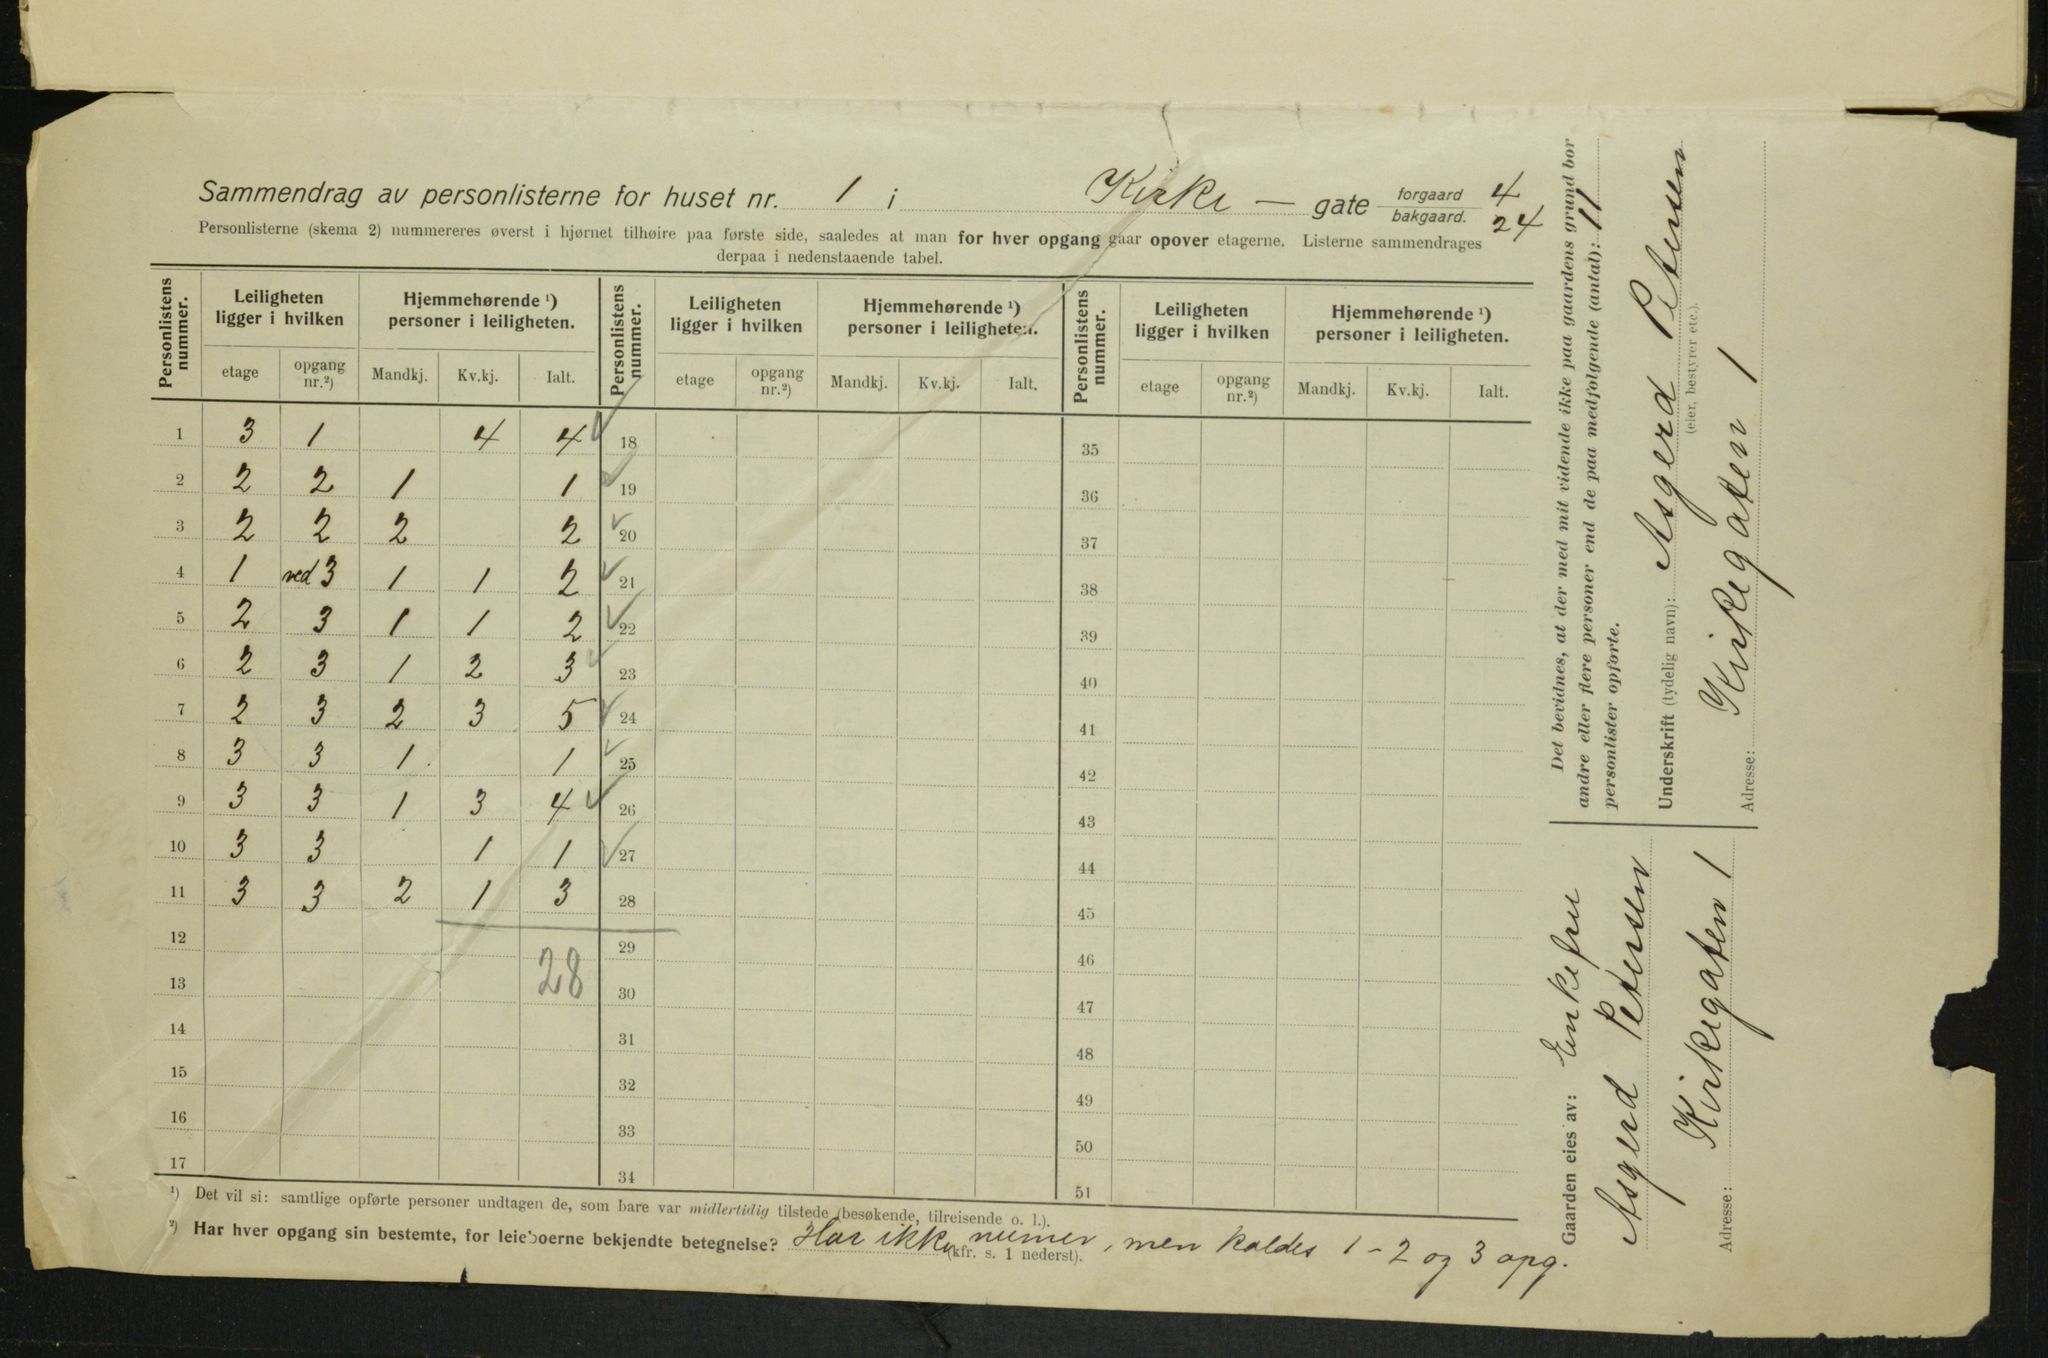 Sammendrag av personlisterne for huset nr. 1 i Kirke - gate forgaard 4
bakgaard. 24
Personlisterne (skema 2) nummereres øverst i hjørnet tilhøire paa første side, saaledes at man for hver opgang gaar opover etagerne. Listerne sammendrages
derpaa i nedenstaaende tabel.
Personlistens nummer. Leiligheten ligger i hvilken Hjemmehørende ¹) personer i leiligheten. Personlistens nummer. Leiligheten ligger i hvilken Hjemmehørende ¹) personer i leiligheten. Personlistens nummer. Leiligheten ligger i hvilken Hjemmehørende ¹) personer i leiligheten.
etage opgang nr.²) Mandkj. Kv.kj. Ialt. etage opgang nr.²) Mandkj. Kv.kj. Ialt. etage opgang nr.²) Mandkj. Kv.kj. Ialt.
1 3 1 4 4 ✓ 18 35
2 2 2 1 1 ✓ 19 36
3 2 2 2 2 ✓ 20 37
4 1 ved 3 1 1 2 ✓ 21 38
5 2 3 1 1 2 ✓ 22 39
6 2 3 1 2 3 ✓ 23 40
7 2 3 2 3 5 ✓ 24 41
8 3 3 1 1 ✓ 25 42
9 3 3 1 3 4 ✓ 26 43
10 3 3 1 1 ✓ 27 44
11 3 3 2 1 3 28 45
12 29 46
13 28 30 47
14 31 48
15 32 49
16 33 50
17 34 51
¹) Det vil si: samtlige opførte personer undtagen de, som bare var midlertidig tilstede (besøkende, tilreisende o. l.).
²) Har hver opgang sin bestemte, for leieboerne bekjendte betegnelse? Har ikke numer, men kaldes 1 - 2 og 3 opg.
(kfr. s. 1 nederst).
Det bevidnes, at der med mit vidende ikke paa gaardens grund bor
andre eller flere personer end de paa medfølgende (antal): 11
personlister opførte.
Underskrift (tydelig navn): Asgerd Petersen
(eier, bestyrer etc.).
Adresse: Kirkegaten 1
Gaarden eies av: Enkefru
Asgerd Petersen
Adresse: Kirkegaten 1